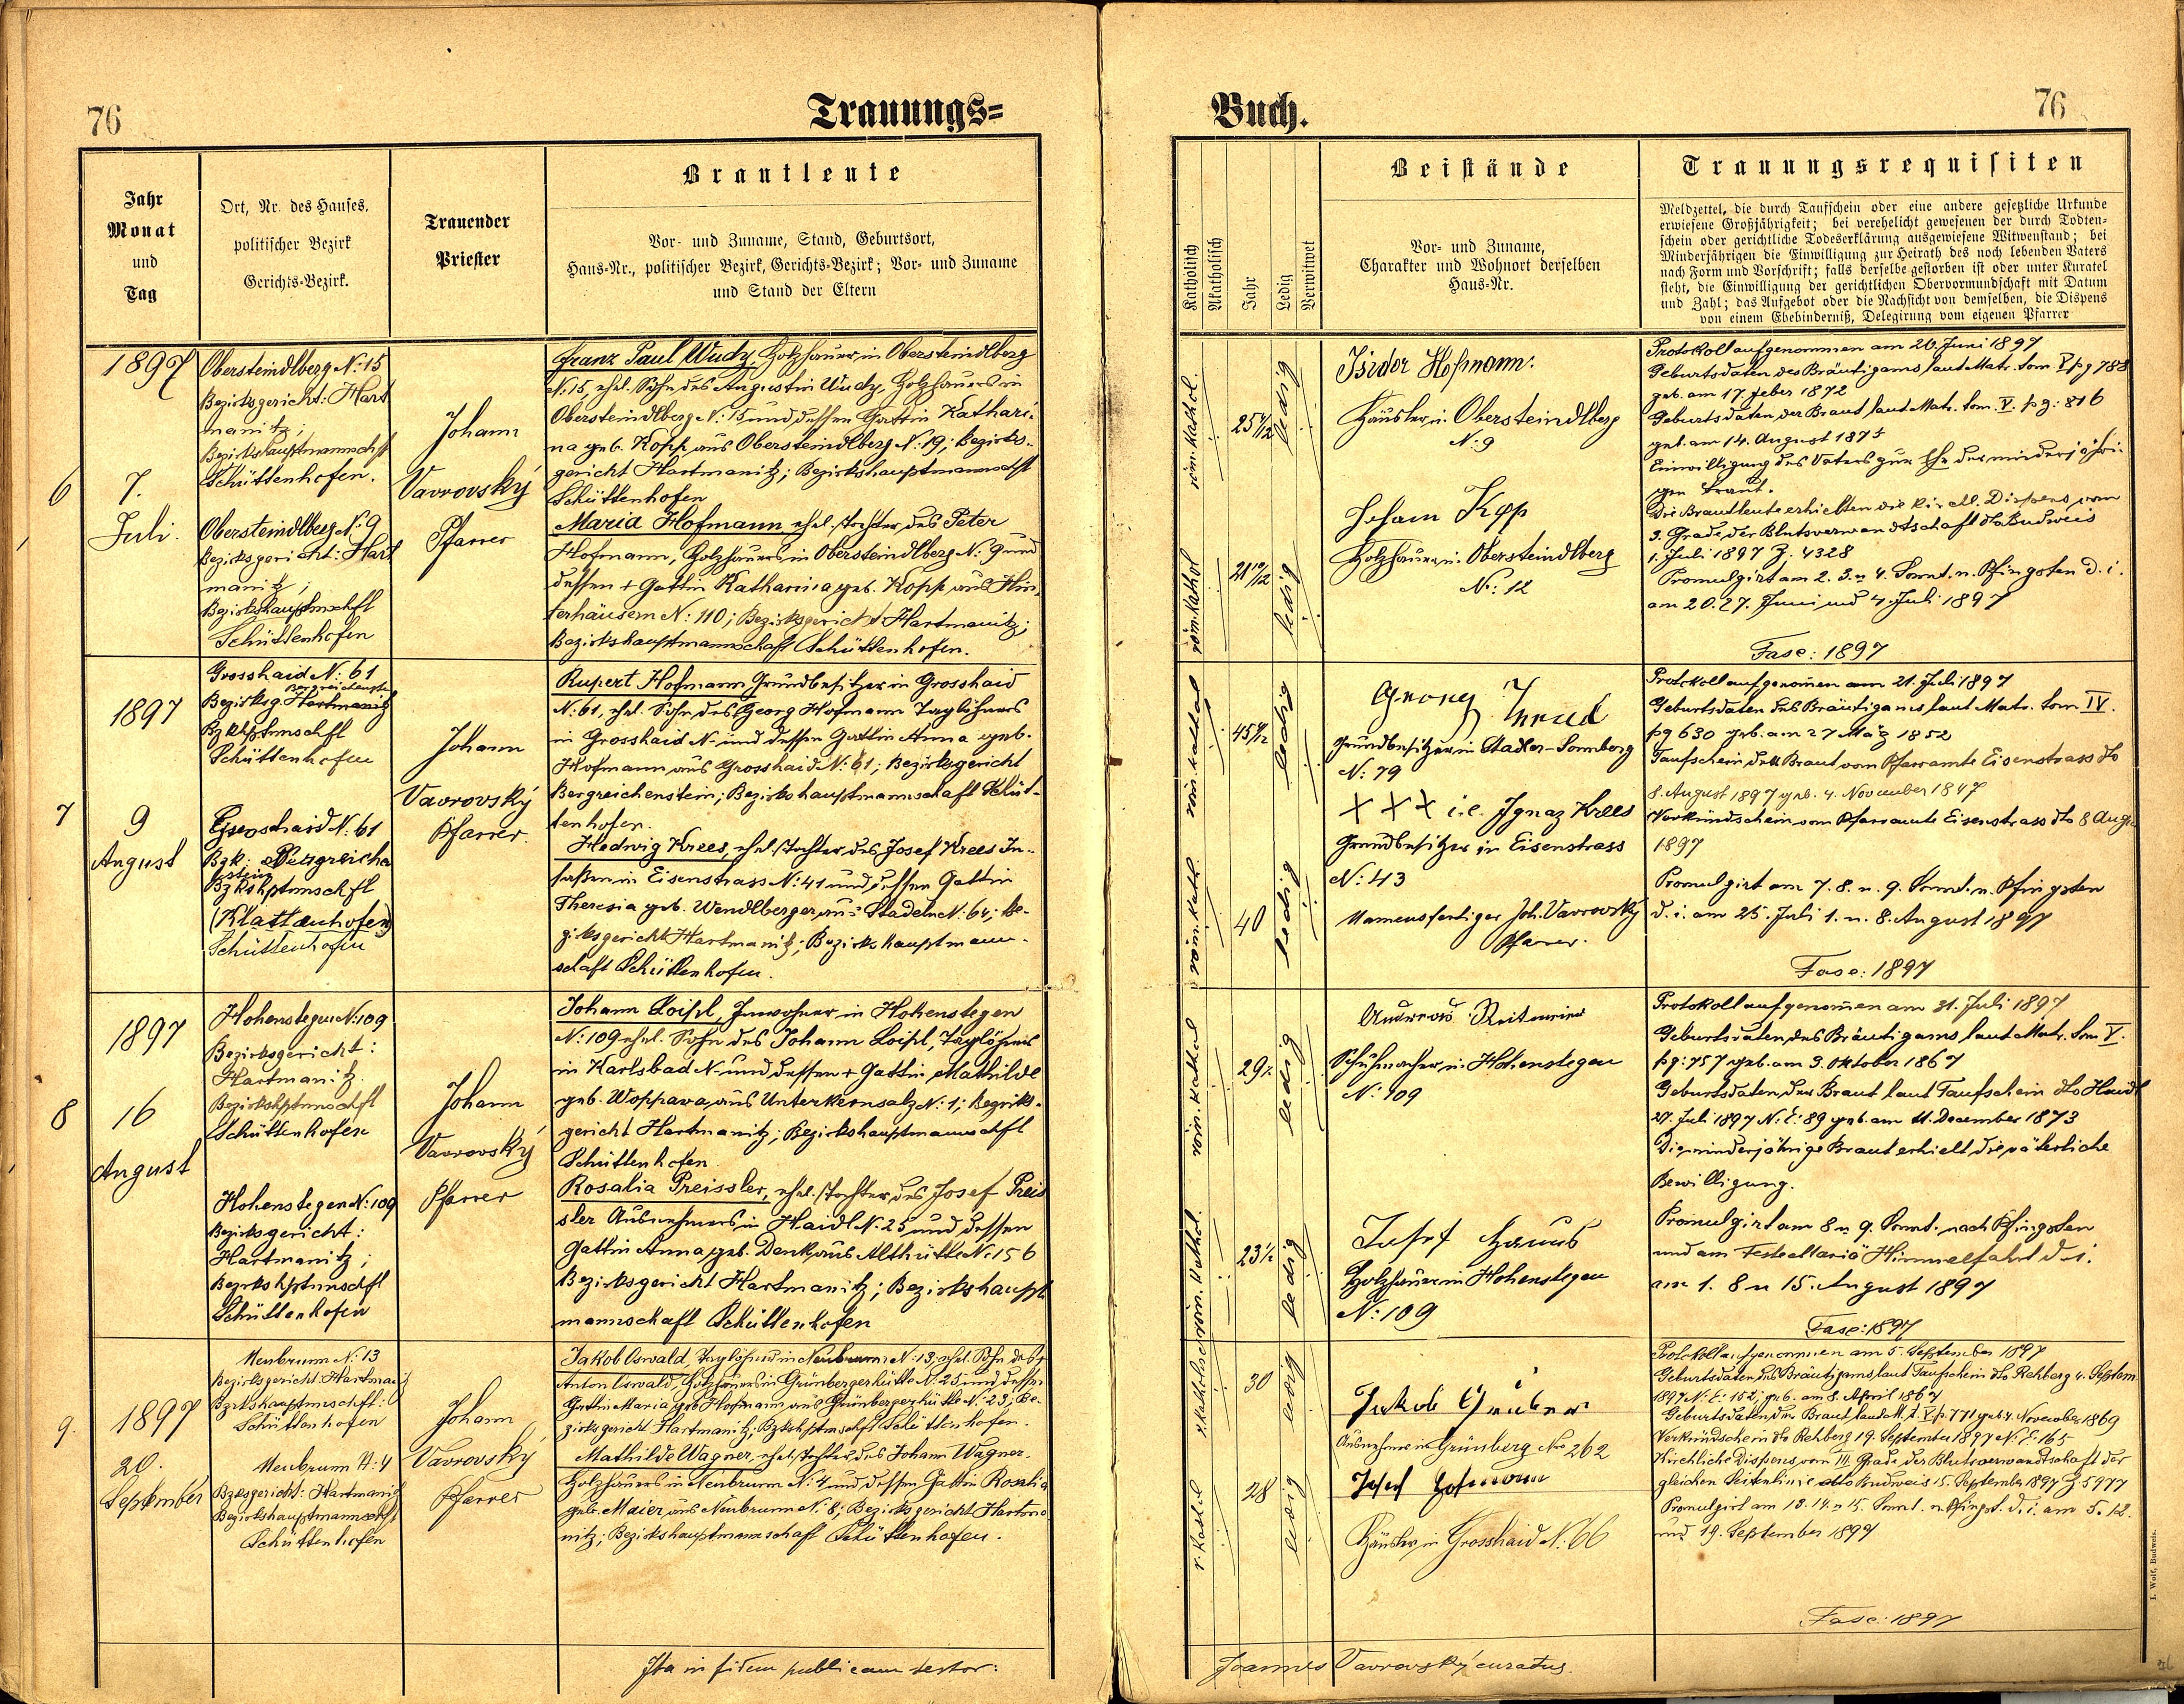 76
Trauungs=
Jahr
Monat
und
Tag
Ort, Nr. des Hauses,
politischer Bezirk
Gerichts-Bezirk.
Trauender
Priester
Brautleute
Vor- und Zuname, Stand, Geburtsort,
Haus-Nr., politischer Bezirk, Gerichts-Bezirk; Vor- und Zuname
und Stand der Eltern
6
1897
7.
Juli.
Obersteindlberg N: 15
Bezirksgericht: Hart
manitz;
Bezirkshauptmannschft
Schüttenhofen.
Obersteindlberg N: 9
Bezirksgericht: Hart
manitz;
Bzirkshauptmschft
Schüttenhofen
Johann
Vavrovský
Pfarrer
Franz Paul Wudy, Holzhauer in Obersteindlberg
N: 15, ehel. Sohn des Augustin Wudy, Holzhauers in
Obersteindlberg N: 15 und dessen Gattin Kathari-
na geb. Kopp aus Obersteindlberg N: 19; Bezirks-
gericht Hartmanitz; Bezirkshauptmannschft
Schüttenhofen
Maria Hofmann ehel. Tochter des Peter
Hofmann, Holzhauers in Obersteindlberg N: 9 und
dessen + Gattin Katharina geb. Kopp aus Hin-
terhäusern N: 110; Bezirksgericht Hartmanitz;
Bezirkshauptmannschaft Schüttenhofen.
7
1897
9
August
Grosshaid N: 61
Bergreichenstn
Bezirksg. Hartmanitz
Bzkhptmschft
Schüttenhofen
Grosshaid N: 61
Bzk: Bergreiche
stein
Bzkshptmschft
(Klattauhofen)
Schüttenhofen
Johann
Vavrovský
Pfarrer.
Rupert Hofmann Grundbesitzer in Grosshaid
N: 61, ehel. Sohn des Georg Hofmann Taglöhners
in Grosshaid N- und dessen Gattin Anna geb.
Hofmann aus Grosshaid N: 61; Bezirksgericht
Bergreichenstein; Bezirkshauptmannschaft Schüt-
tenhofen.
Hedwig Krees, ehel. Tochter des Josef Krees In-
saßen in Eisenstrass N: 41 und dessen Gattin
Theresia geb. Wendlberger aus Stadeln N: 64; Be-
zirksgericht Hartmanitz; Bezirkshauptmann-
schaft Schüttenhofen.
8
1897
16
August
Hohenstegen N: 109
Bezirksgericht:
Hartmanitz.
Bezirkshptmschft
Schüttenhofen
Hohenstegen N: 109
Bezirksgericht:
Hartmanitz;
Bezirkshptmschft
Schüttenhofen
Johann
Vavrovský
Pfarrer
Johann Loispl, Inwohner in Hohenstegen
N: 109 ehel. Sohn des Johann Loispl, Taglöhners
in Karlsbad N- und dessen + Gattin Mathilde
geb. Woppava aus Unterkernsalz N: 1; Bezirks-
gericht Hartmanitz; Bezirkshauptmannschft
Schüttenhofen
Rosalia Preissler, ehel. Tochter des Josef Preis
sler Ausnehmers in Haidl N. 25 und dessen
Gattin Anna geb. Denk aus Althütte N: 156
Bezirksgericht Hartmanitz; Bezirkshaupt
mannschaft Schüttenhofen
9.
1897
20.
September
Neubrunn N: 13
Bezirksgericht: Hartmanitz
Bzrkshauptmschft:
Schüttenhofen
Neubrunn N: 4
Bzksgericht: Hartmanitz
Bezirkshauptmannschft
Schüttenhofen
Johann
Vavrovský
Pfarrer
Jakob Oswald, Taglöhner in Neubrunn N: 13; ehel. Sohn des +
Anton Oswald, Holzhauers in Grünbergerhütte N: 25 und dessen
Gattin Maria geb. Hofmann aus Grünbergerhütte N: 23; Be-
zirksgericht Hartmanitz; Bzkshptmschft Schüttenhofen.
Mathilde Wagner, ehel. Tochter des Johann Wagner
Holzhauers in Neubrunn N: 4 und dessen Gattin Rosalia
geb. Maier aus Neubrunn N: 8; Bezirksgericht Hartma
nitz; Bezirkshauptmannschaft Schüttenhofen.
Ita in fidem publicam testor:
Buch.
76
Katholisch
Akatholisch
Jahr
Ledig
Verwitwet
Beistände
Vor- und Zuname,
Charakter und Wohnort derselben
Haus-Nr.
Trauungsrequisiten
Meldzettel, die durch Taufschein oder eine andere gesetzliche Urkunde
erwiesene Großjährigkeit; bei verehelicht gewesenen der durch Todten-
schein oder gerichtliche Todeserklärung ausgewiesene Witwenstand; bei
Minderjährigen die Einwilligung zur Heirath des noch lebenden Vaters
nach Form und Vorschrift; falls derselbe gestorben ist oder unter Kuratel
steht, die Einwilligung der gerichtlichen Obervormundschaft mit Datum
und Zahl; das Aufgebot oder die Nachsicht von demselben, die Dispens
von einem Ehebinderniß, Delegirung vom eigenen Pfarrer
röm. Kathol.
ledig
röm. Kathol
21 10/12
ledig
Isidor Hofmann.
Häusler in Obersteindlberg
N: 9
Johann Kopp
Holzhauer in Obersteindlberg
N: 12
Protokoll aufgenommen am 20. Juni 1897
Geburtsdaten des Bräutigams laut Matr. tom V pg 788
geb. am 17. Feber 1872
Geburtsdaten der Braut laut Matr. tom. V. pg: 816
geb. am 14. August 1875
Einwilligung des Vaters zur Ehe der minderjähri-
gen Braut.
Die Brautleute erhielten die kirchl. Dispens vom
3. Grade der Blutsverwandtschaft dto Budweis
1. Juli 1897 Z: 4328
Promulgirt am 2. 3. u 4. Sonnt. n. Pfingsten d. i.
am 20. 27. Juni und 4. Juli 1897
Fasc: 1897
röm. kathol
ledig
röm. kath.
40
ledig
Grundbesitzer in Stadler-Sonnberg
N: 79
XXX i. e. Ignaz Krees
Grundbesitzer in Eisenstrass
N: 43
Namensfertiger Joh. Vavrovský
Pfarrer.
Protokoll aufgenom̄en am 21. Juli 1897
Geburtsdaten des Bräutigams laut Matr. tom IV.
pg 630 geb. am 27 März 1852
Taufschein der Braut vom Pfarramte Eisenstrass dto
8. August 1897 geb. 4. November 1847
Verkündschein vom Pfarramte Eisenstrass dto 8 Aug.
1897
Promulgirt am 7. 8. u. 9. Sonnt. n. Pfingsten
d. i. am 25. Juli 1. u. 8. August 1897
Fasc: 1897
röm. kathol
ledig
röm. kathol.
23 1/2
ledig
Andreas Reitmeier
Schuhmacher in Hohenstegen
N: 109
Josef
Holzhauer in Hohenstegen
N: 109
Protokoll aufgenom̄en am 31. Juli 1897
Geburtsdaten des Bräutigams laut Matr. tom V.
pg: 757 geb. am 3. Oktober 1867
Geburtsdaten der Braut laut Taufschein dto Haidl
27. Juli 1897 N: E: 89 geb. am 11. December 1873
Die minderjährige Braut erhielt die väterliche
Bewilligung.
Promulgirt am 8 u 9. Sonnt. nach Pfingsten
und am Feste Mariä Himmelfahrt d. i.
am 1. 8 u 15. August 1897
Fasc: 1897
r. kathol
30
ledig
r. kathol
28
ledig
Jakob Gruber
Ausnehmer in Grünberg Nro 262
Josef Hofmann
Häusler in Grosshaid N: 66
Protokoll aufgenommen am 5. September 1897
Geburtsdaten des Bräutigams laut Taufschein dto Rehberg 4. Septem.
1897 N: E: 152; geb. am 8. April 1867
Geburtsdaten der Braut laut M. t. V p. 771 geb. 4. November 1869
Verkündschein dto Rehberg 19. September 1897 N: E: 165
Kirchliche Dispens vom III. Grade der Blutsverwandtschaft der
gleichen Seitenlinie dto Budweis 15. September 1897 Z 5977
Promulgirt am 13. 14. u 15. Sonnt. n. Pfingst. d. i. am 5. 12.
und 19. September 1897
Fasc: 1897
Joannes Vavrovský curatus.
J. Wolf, Budweis.